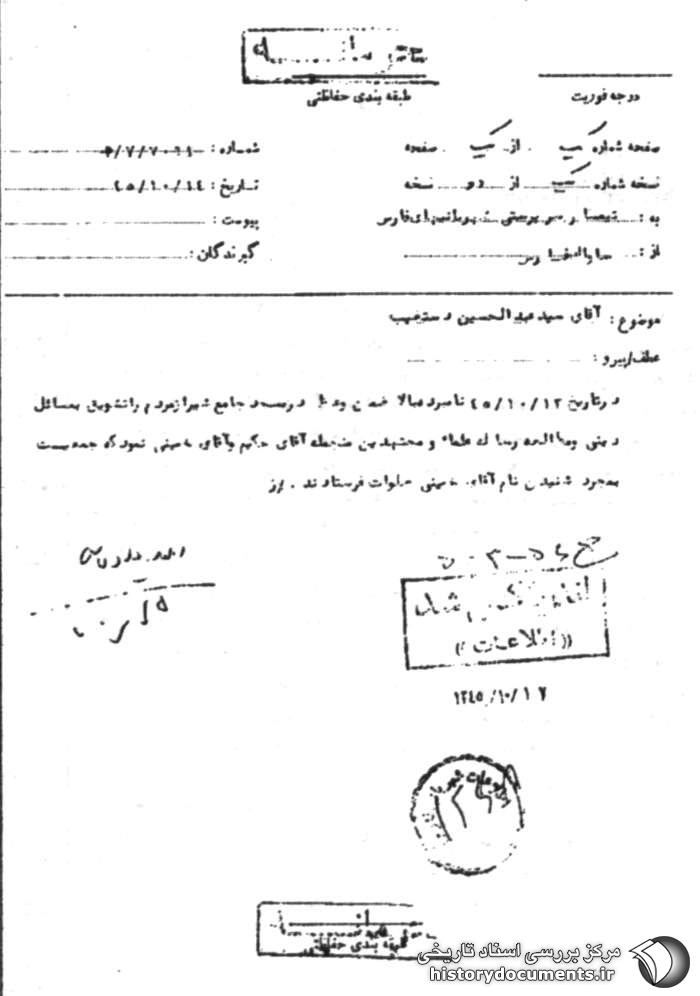 محرمانه
طبقه بندی حفاظتی
درجه فوریت
صفحه شماره یک از یک صفحه
شماره :
نسخه شماره یک از دو نسخه
تاریخ : ٤٥/١٠/١٤
به : تیمسار سرپرستی شهربانیهای فارس
پیوست :
از : ساواک فارس
گیرندگان :
موضوع : آقای سید عبدالحسین دستغیب
عطف/پیرو :
در تاریخ ٤٥/١٠/١٢ نامبرده بالا ضمن وعظ در مسجد جامع شیراز مردم را تشویق بمسائل
دینی ومطالعه رساله علماء و مجتهدین منجمله آقای حکیم وآقای خمینی نمود که جمعیت
بمجرد شنیدن نام آقای خمینی صلوات فرستادند .
شد
((اطلاعات))
١٣٤٥/١٠/١٧
طبقه بندی حفاظتی
مرکز بررسی اسناد تاریخی
historydocuments.ir